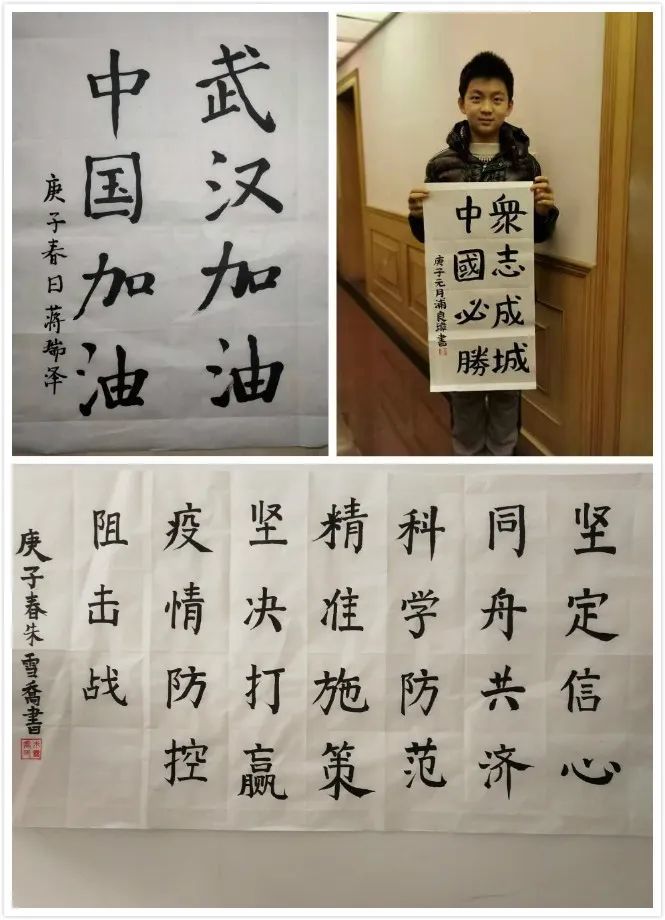 武汉加油
中国加油
庚子春日 蒋瑞泽
衆志成城
中國必勝
庚子元月浦良璋書
坚定信心
同舟共济
科学防范
精准施策
坚决打赢
疫情防控
阻击战
庚子春朱雪喬書